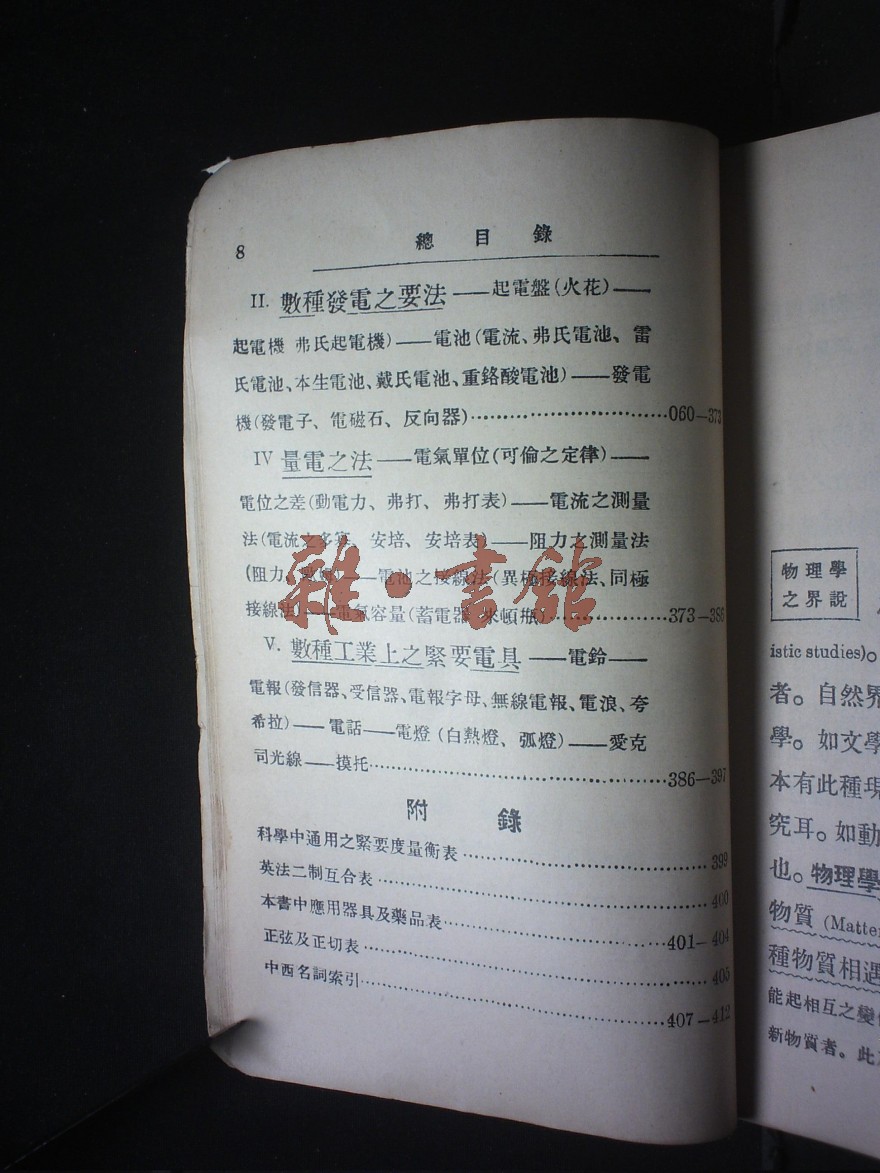 8 總目錄
II. 數種發電之要法——起電盤(火花)——
起電機 弗氏起電機)——電池(電流、弗氏電池、雷
氏電池、本生電池、戴氏電池、重鉻酸電池)——發電
機(發電子、電磁石、反向器)……060—373
IV 量電之法——電氣單位(可倫之定律)——
電位之差(動電力、弗打、弗打表)——電流之測量
法(電流之多寡、安培、安培表)——阻力之測量法
(阻力、——電池之接線法(異極接線法、同極
接線法)——電氣容量(蓄電器、來頓瓶)……373—386
V. 數種工業上之緊要電具——電鈴——
電報(發信器、受信器、電報字母、無線電報、電浪、夸
希拉)——電話——電燈(白熱燈、弧燈)——愛克
司光線——摸托……386—397
附錄
科學中通用之緊要度量衡表……399
英法二制互合表……400
本書中應用器具及藥品表……401—404
正弦及正切表……405
中西名詞索引……407—412
雜·書館
物理學
之界說
istic studies)。
者。自然界
學。如文學
本有此種現
究耳。如動
也。物理學
物質 (Matte
種物質相遇
能起相互之變
新物質者。此